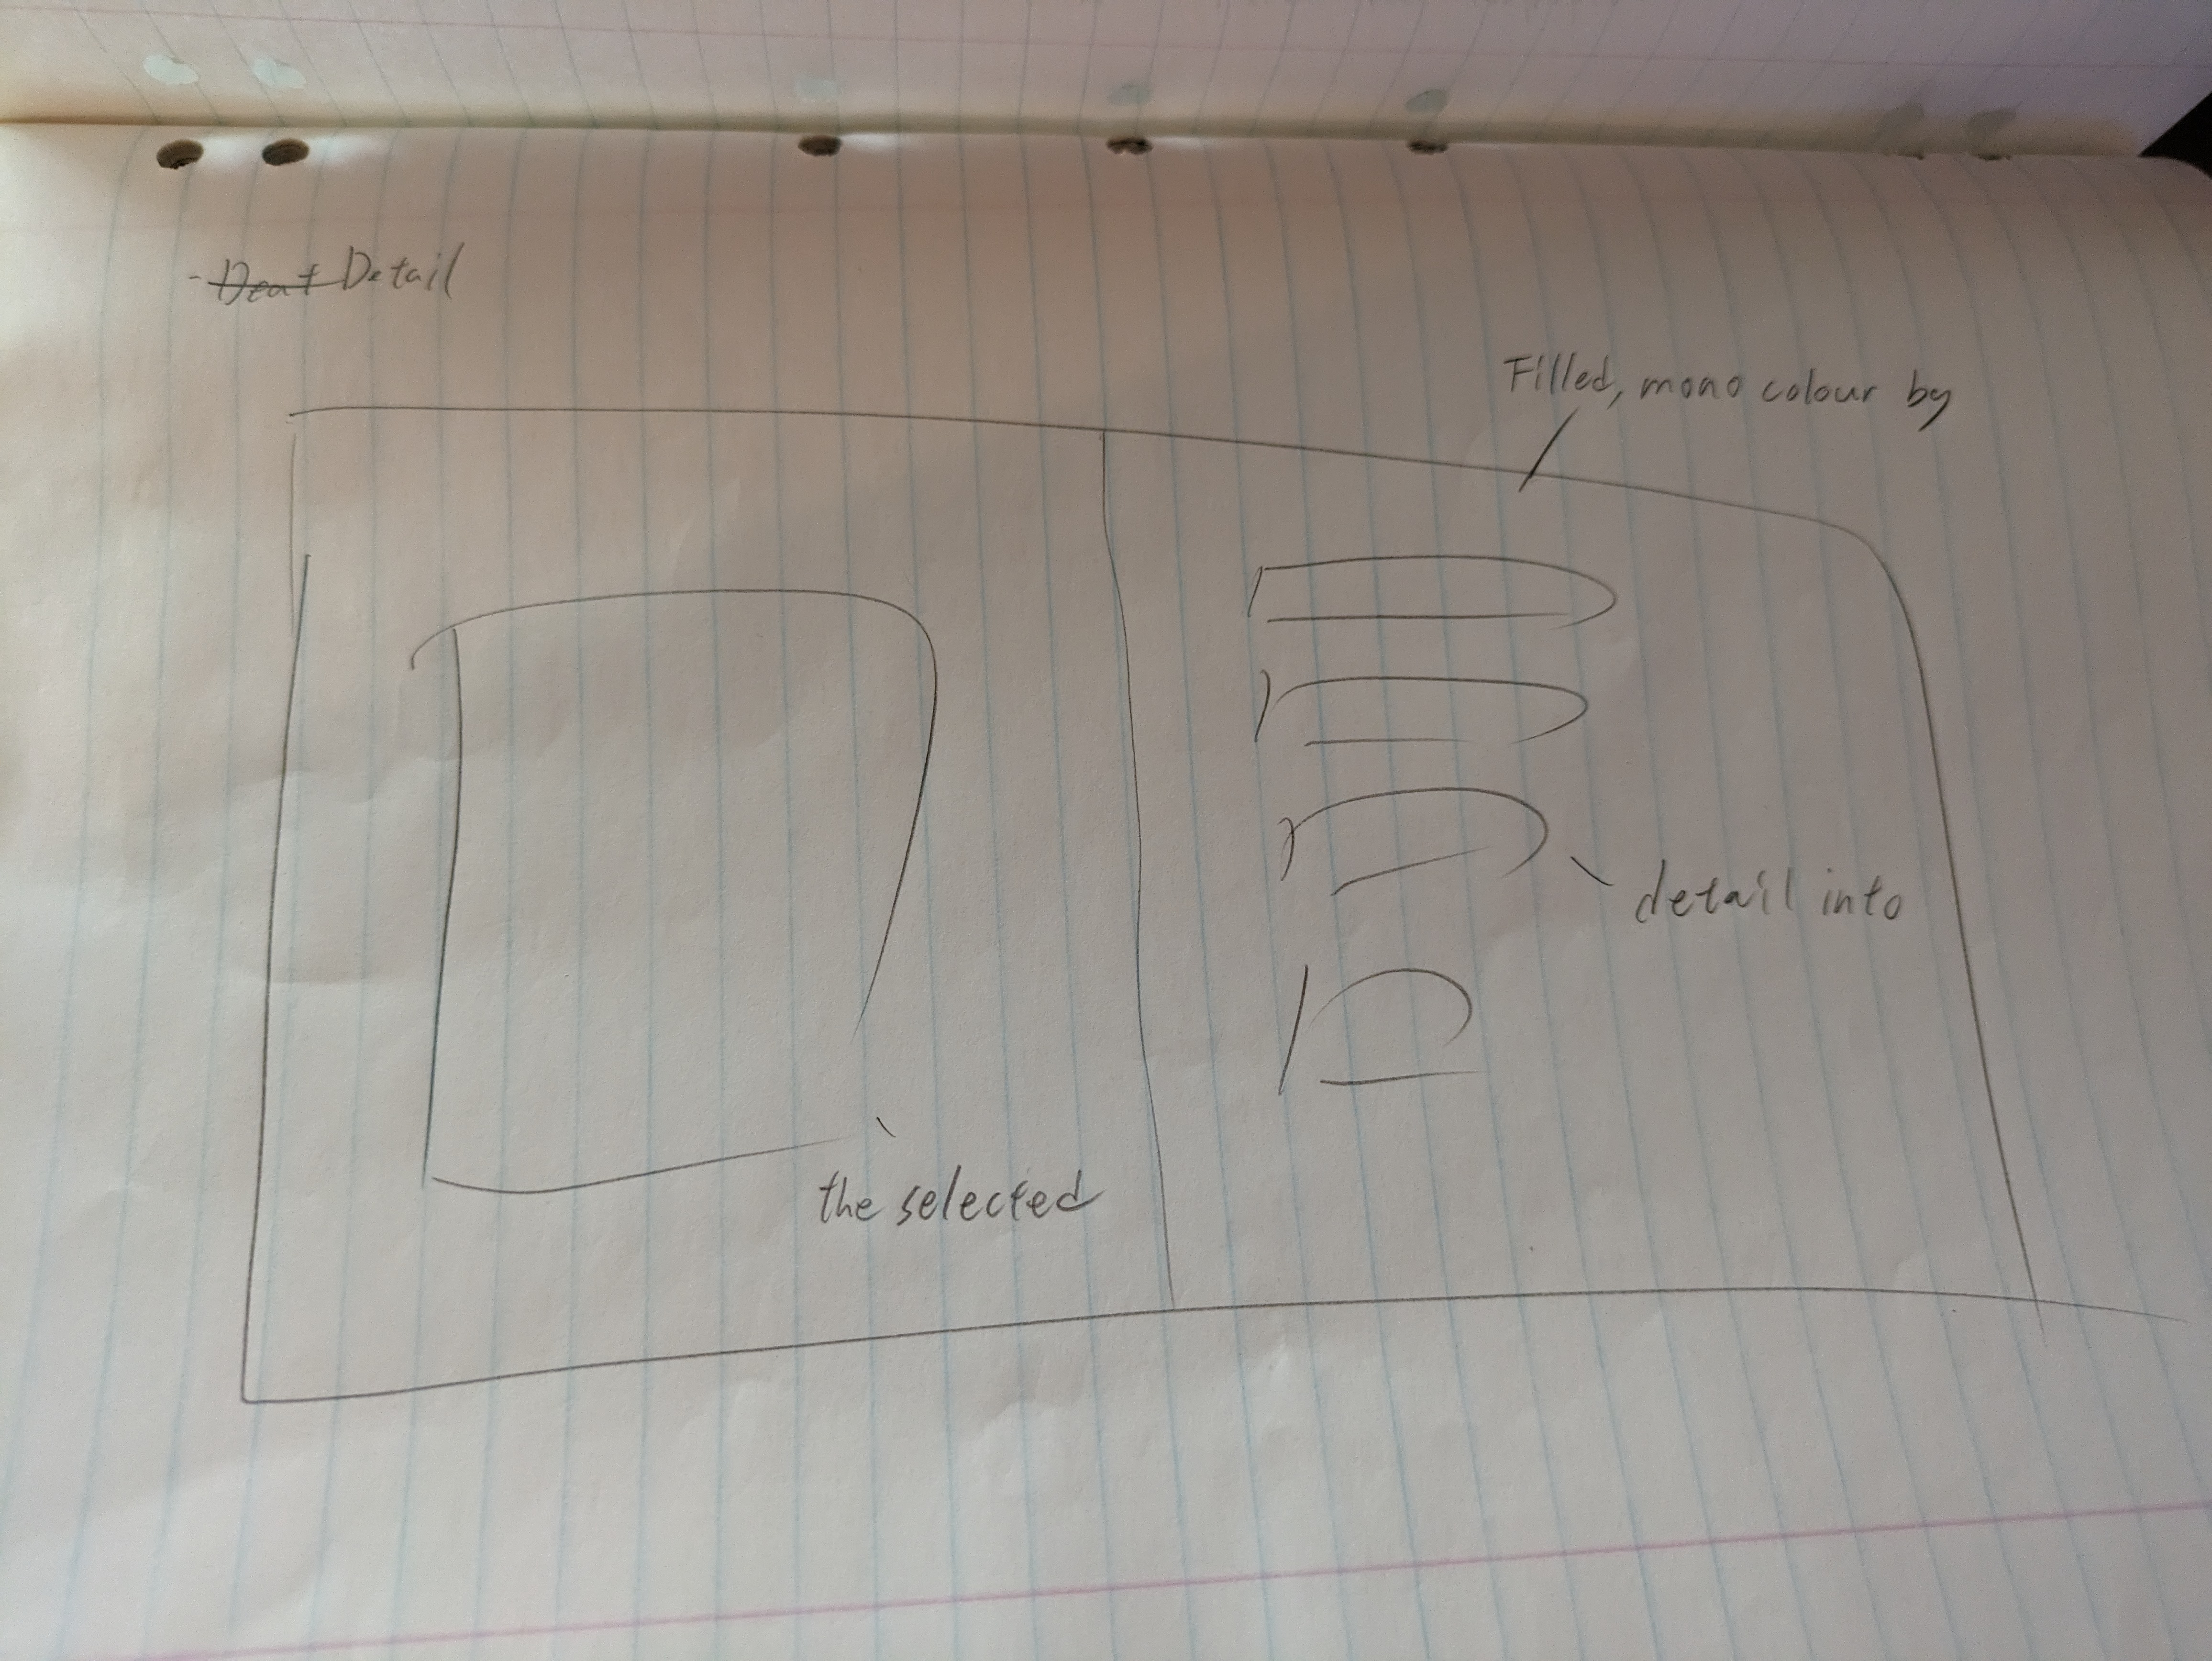 - Deat Detail
Filled, mono colour by
detail into
the selected